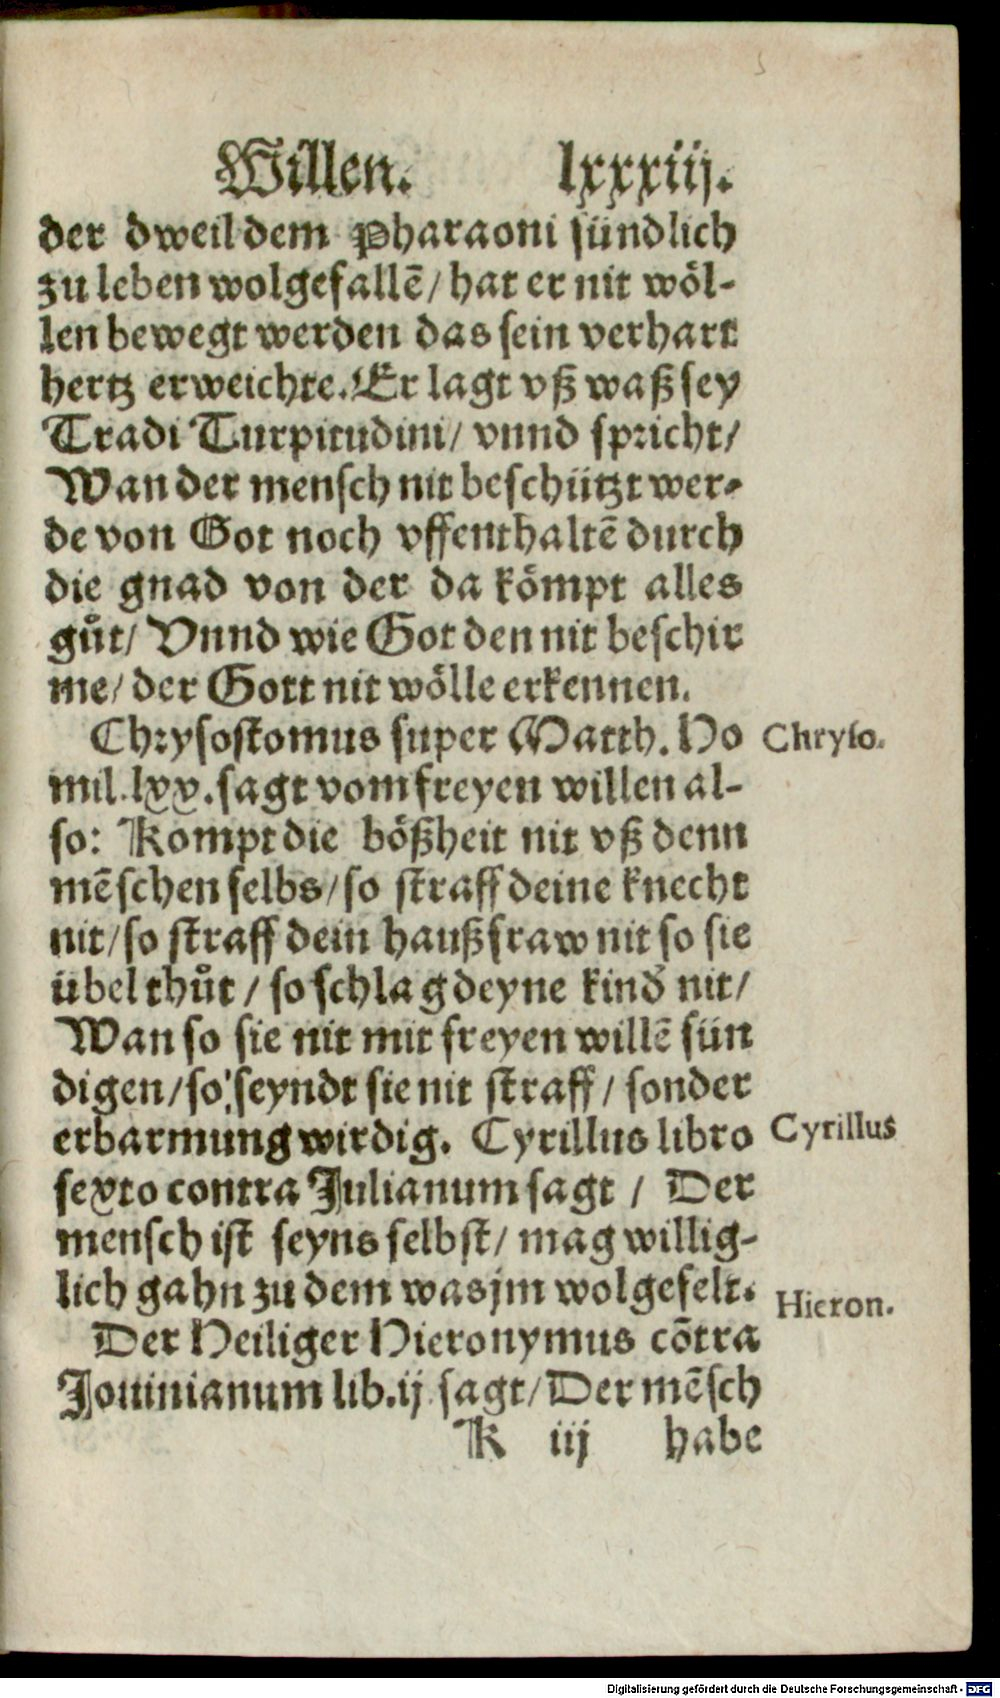 Willen. lxxxiij.
der dweil dem Pharaoni sündlich
zu leben wolgefallẽ/ hat er nit wöl-
len bewegt werden das sein verhart
hertz erweichte. Er lagt vß waß sey
Tradi Turpitudini/ vnnd spricht/
Wan der mensch nit beschützt wer-
de von Got noch vffenthaltẽ durch
die gnad von der da kömpt alles
gůt/ Vnnd wie Got den nit beschir
me/ der Gott nit wölle erkennen.
Chrysostomus super Matth. Ho
mil. lxx. sagt vom freyen willen al-
so: Kompt die bößheit nit vß denn
mẽschen selbs/ so straff deine knecht
nit/ so straff dein haußfraw nit so sie
übel thůt/ so schlag deyne kind nit/
Wan so sie nit mit freyen willẽ sün
digen/ so seyndt sie nit straff/ sonder
erbarmung wirdig. Cyrillus libro
sexto contra Julianum sagt/ Der
mensch ist seyns selbst/ mag willig-
lich gahn zu dem was jm wolgefelt.
Der Heiliger Hieronymus cõtra
Jouinianum lib. ij. sagt/ Der mẽsch
K iij habe
Chryso.
Cyrillus
Hieron.
Digitalisierung gefördert durch die Deutsche Forschungsgemeinschaft - DFG